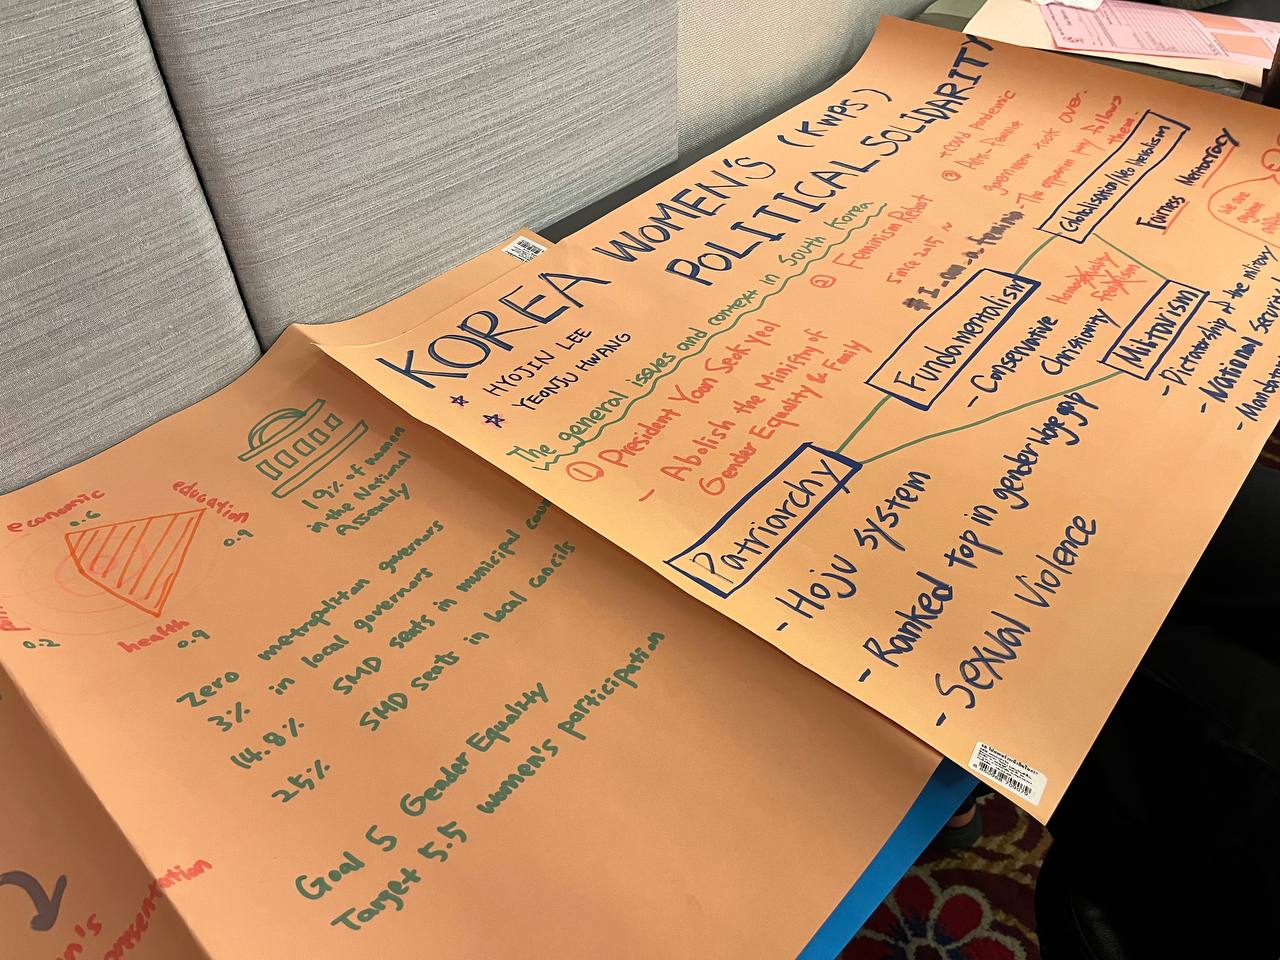 KOREA WOMEN'S (KWPS)
POLITICAL SOLIDARITY
HYOJIN LEE
YEONJU HWANG
The general issues and context in South Korea
① President Yoon Seok yeol
- Abolish the Ministry of
Gender Equality & Family
② Feminism Reboot
since 2015 ~
#I_am_a_feminist
+ Covid pandemic
③ Anti-feminist
government took over.
The opposition may follows
them.
Patriarchy
- Hoju system
- Ranked top in gender wage gap
- Sexual Violence
Fundmentalism
- Conservative
Christianity
Globalisation/Neo liberalism
Fairness Meritocracy
We are
against
Militarism
- Dictatorship of the military
- National Security
19% of women
in the National
Assembly
economic
0.6
education
0.9
health
0.9
0.2
Zero metropolitan governors
3% in local governors
14.8% SMD seats in municipal
25% SMD seats in local concils
Goal 5 Gender Equality
Target 5.5 women's participation